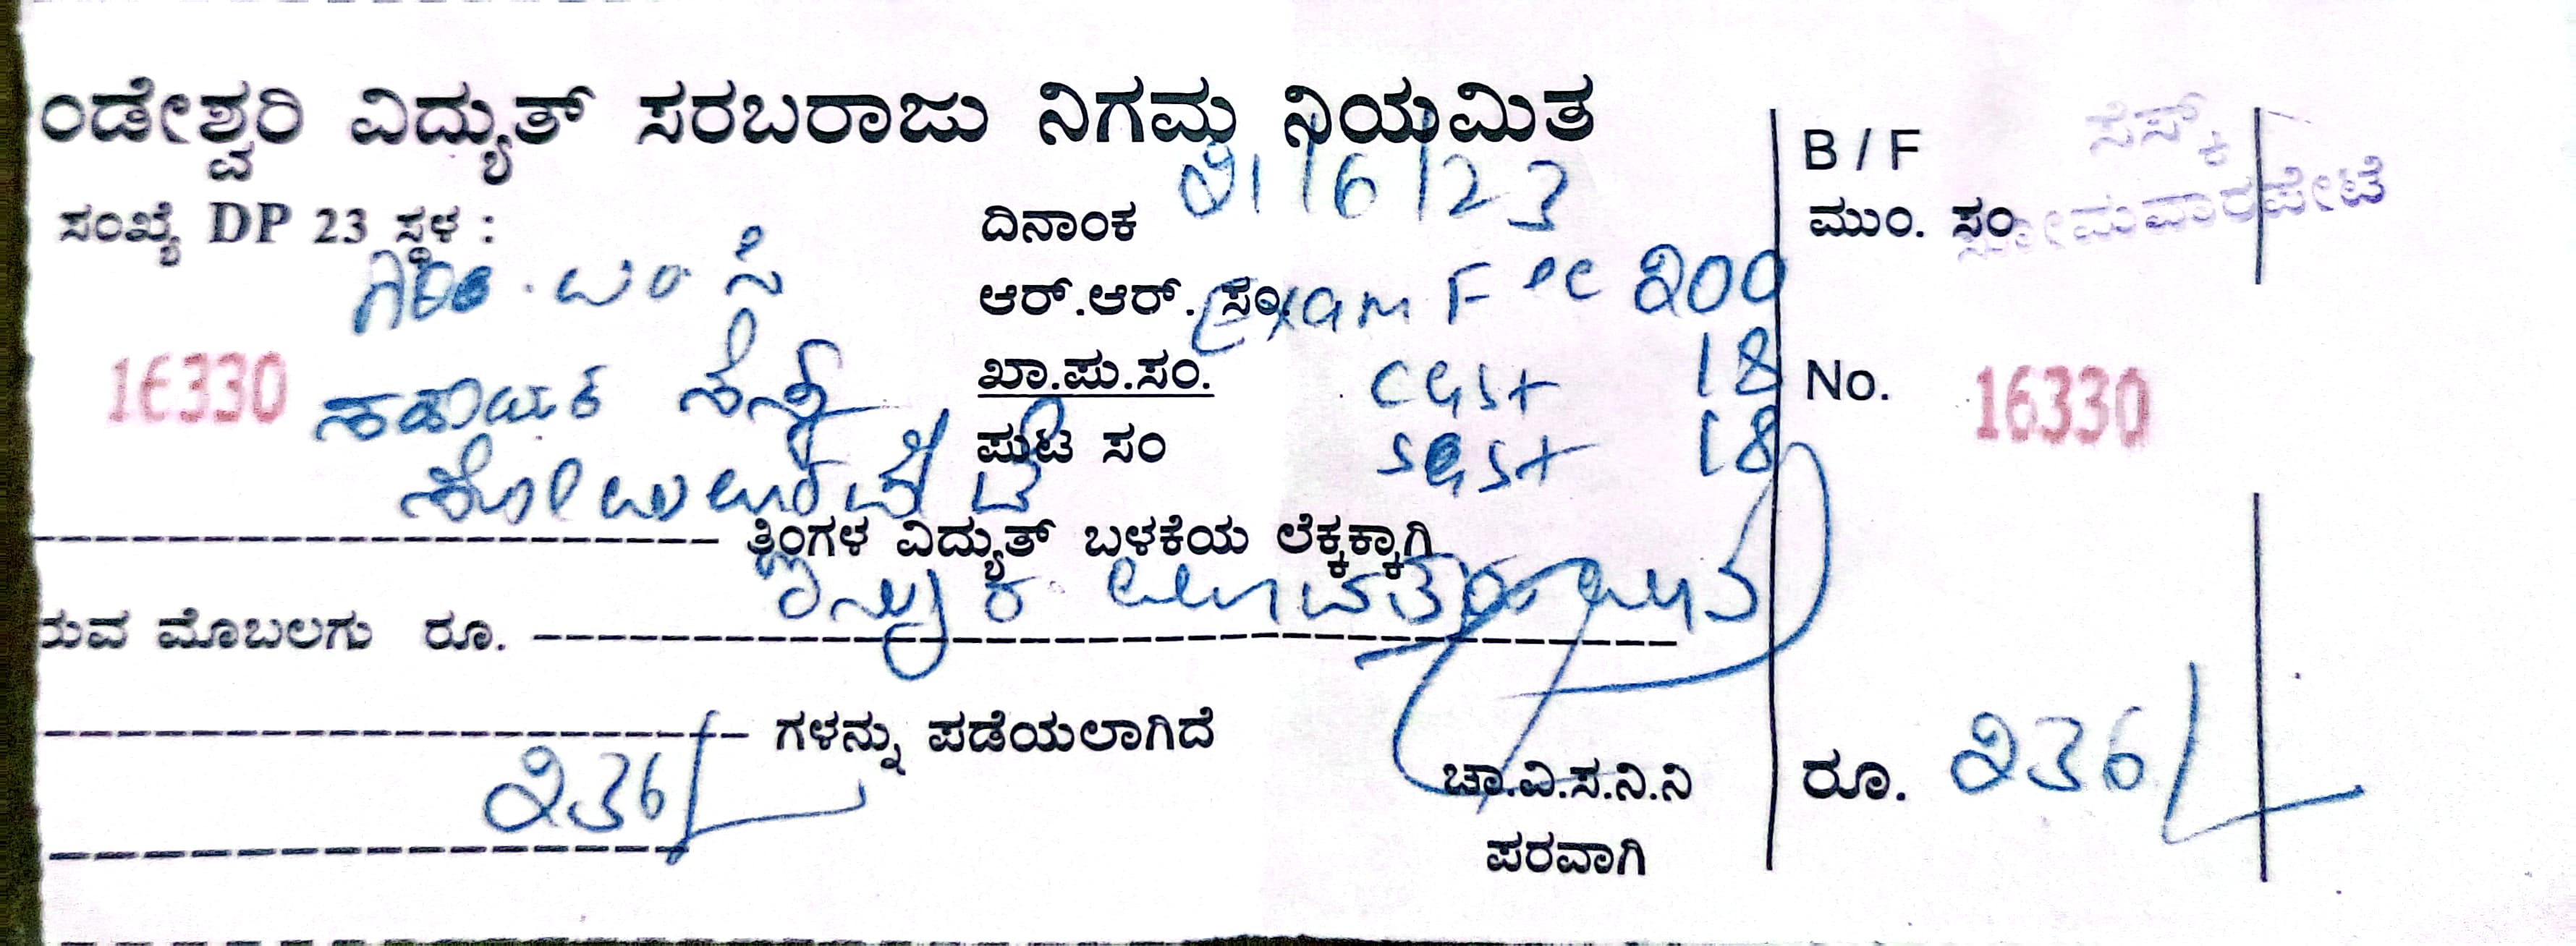 ಂಡೇಶ್ವರಿ ವಿದ್ಯುತ್ ಸರಬರಾಜು ನಿಗಮ ನಿಯಮಿತ
ಸಂಖ್ಯೆ DP 23 ಸ್ಥಳ :
ದಿನಾಂಕ 21/6/23
ಆರ್.ಆರ್. ಸಂ. Exam Fee 200
16330
ಖಾ.ಪು.ಸಂ. CGST 18
ಪುಟ ಸಂ SGST 18
ತಿಂಗಳ ವಿದ್ಯುತ್ ಬಳಕೆಯ ಲೆಕ್ಕಕ್ಕಾಗಿ
ರುವ ಮೊಬಲಗು ರೂ.
ಗಳನ್ನು ಪಡೆಯಲಾಗಿದೆ
236/-
ಚಾ.ವಿ.ಸ.ನಿ.ನಿ
ಪರವಾಗಿ
B / F
ಮುಂ. ಸಂ
ಸೆಸ್ಕ್
ಸೋಮವಾರಪೇಟೆ
No. 16330
ರೂ. 236/-